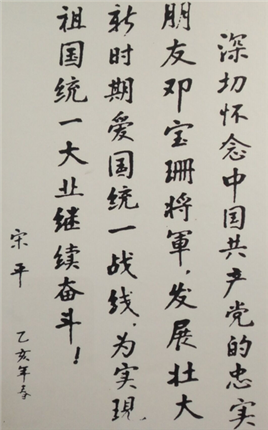 深切怀念中国共产党的忠实
朋友邓宝珊将軍，发展壮大
新时期爱国统一战线，为实現
祖国统一大业继续奋斗！
宋平
乙亥年春